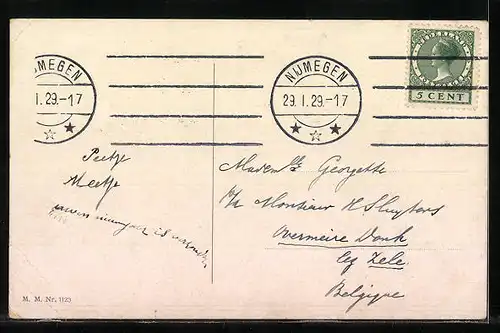 JMEGEN
I.29.-17
NIJMEGEN
29.I.29-17
NEDERLAND
5 CENT
Peetje
Meetje
Madem^lle Georgette
p/a Monsieur K Sluyters
Overmeire Donk
bij Zele
Belgique
M. M. Nr. 1123